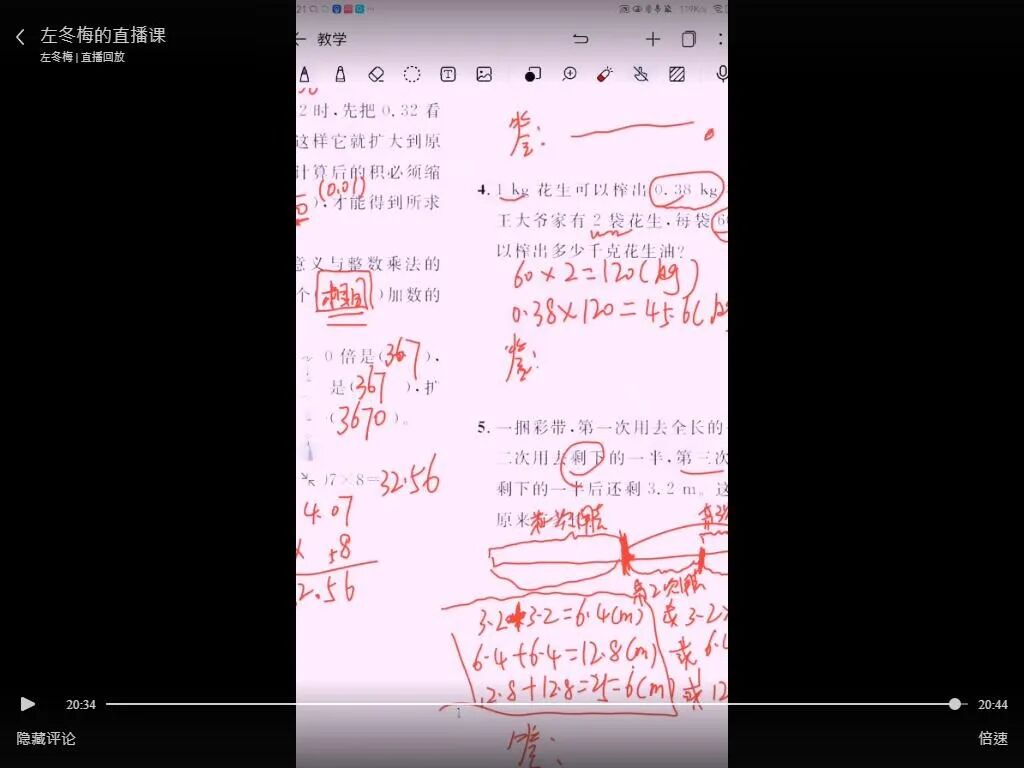 左冬梅的直播课
左冬梅 | 直播回放
21
119K/s
教学
2时,先把0.32看
这样它就扩大到原
计算后的积必须缩
(0.01)
),才能得到所求
意义与整数乘法的
个(相同)加数的
0倍是(367),
是(367),扩
(3670)。
)7×8=32.56
4.07
× 8
2.56
答:
4. 1 kg花生可以榨出0.38 kg
王大爷家有2袋花生,每袋6
以榨出多少千克花生油?
60×2=120(kg)
0.38×120=45.6(kg
答:
5. 一捆彩带,第一次用去全长的
二次用去剩下的一半,第三次
剩下的一半后还剩3.2 m。这
原来
第一次用去
第2次用去
3.2+3.2=6.4(m) 或 3.2×
6.4+6.4=12.8(m) 或 6.4
12.8+12.8=25.6(m) 或 12
答:
1
20:34
20:44
隐藏评论
倍速